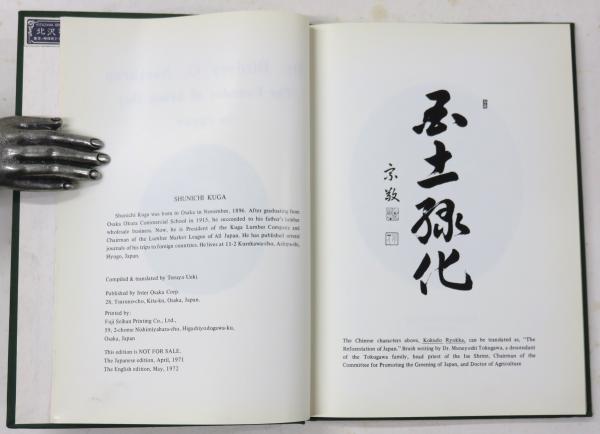 北沢
SHUNICHI KUGA
Shunichi Kuga was born in Osaka in November, 1896. After graduating from
Osaka Okura Commercial School in 1915, he succeeded to his father's lumber
wholesale business. Now, he is President of the Kuga Lumber Company and
Chairman of the Lumber Market League of All Japan. He has published several
journals of his trips to foreign countries. He lives at 11-2 Kurokawa-cho, Ashiya-shi,
Hyogo, Japan.
Compiled & translated by Tetsuya Ueki.
Published by Inter Osaka Corp.
26, Tsuruno-cho, Kita-ku, Osaka, Japan.
Printed by:
Fuji Seihan Printing Co., Ltd.,
59, 2-chome Nishimiyahara-cho, Higashiyodogawa-ku,
Osaka, Japan
This edition is NOT FOR SALE.
The Japanese edition, April, 1971
The English edition, May, 1972
国土緑化
宗敬
The Chinese characters above, Kokudo Ryokka, can be translated as, "The
Reforestation of Japan." Brush writing by Dr. Muneyoshi Tokugawa, a descendant
of the Tokugawa family, head priest of the Ise Shrine, Chairman of the
Committee for Promoting the Greening of Japan, and Doctor of Agriculture